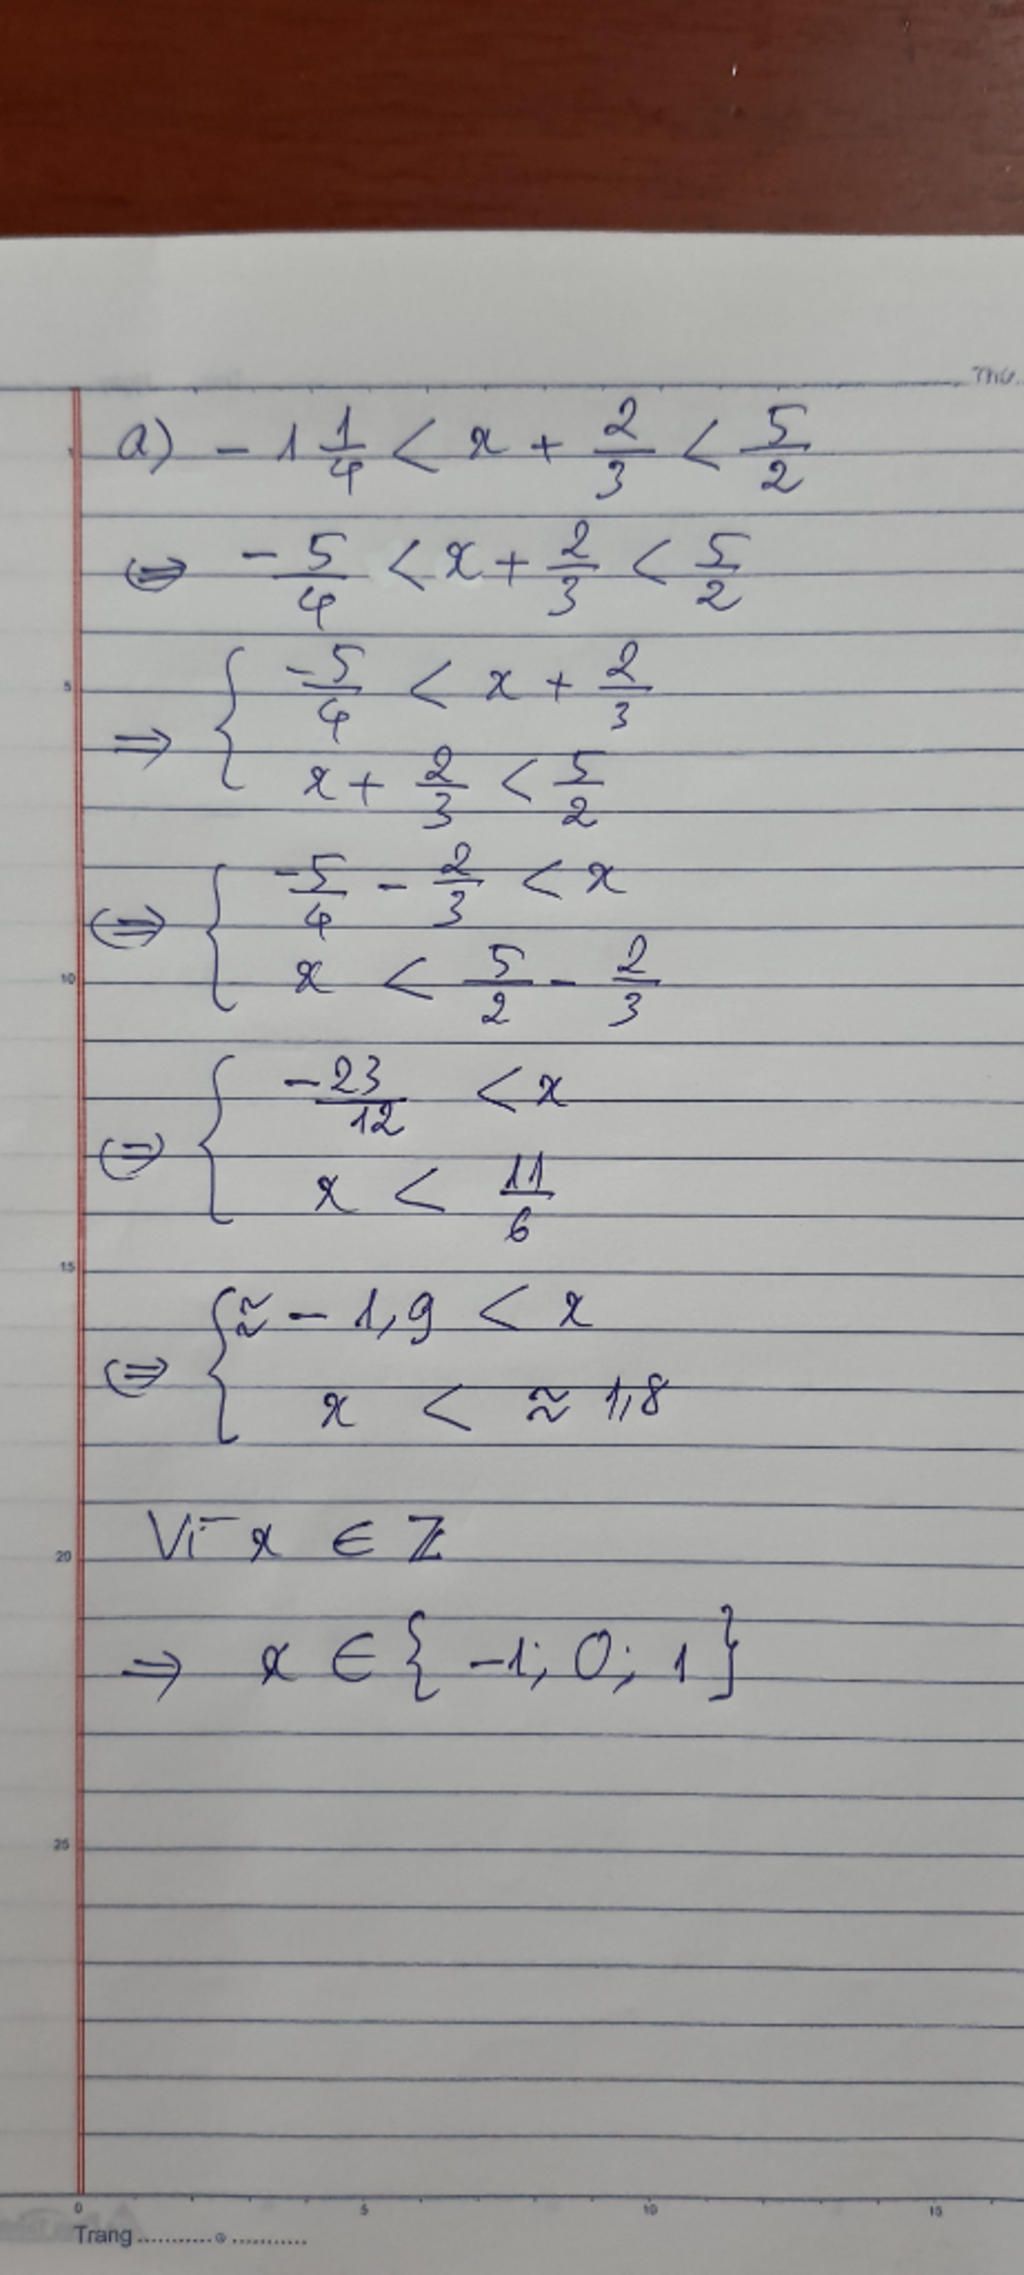 Thứ
a) - 1 1/4 < x + 2/3 < 5/2
⇔ -5/4 < x + 2/3 < 5/2
⇒ { -5/4 < x + 2/3
x + 2/3 < 5/2
⇔ { -5/4 - 2/3 < x
x < 5/2 - 2/3
⇔ { -23/12 < x
x < 11/6
⇔ { ≈ - 1,9 < x
x < ≈ 1,8
Vì x ∈ Z
⇒ x ∈ { -1; 0; 1 }
5
10
15
20
25
0 5 10 15
Trang